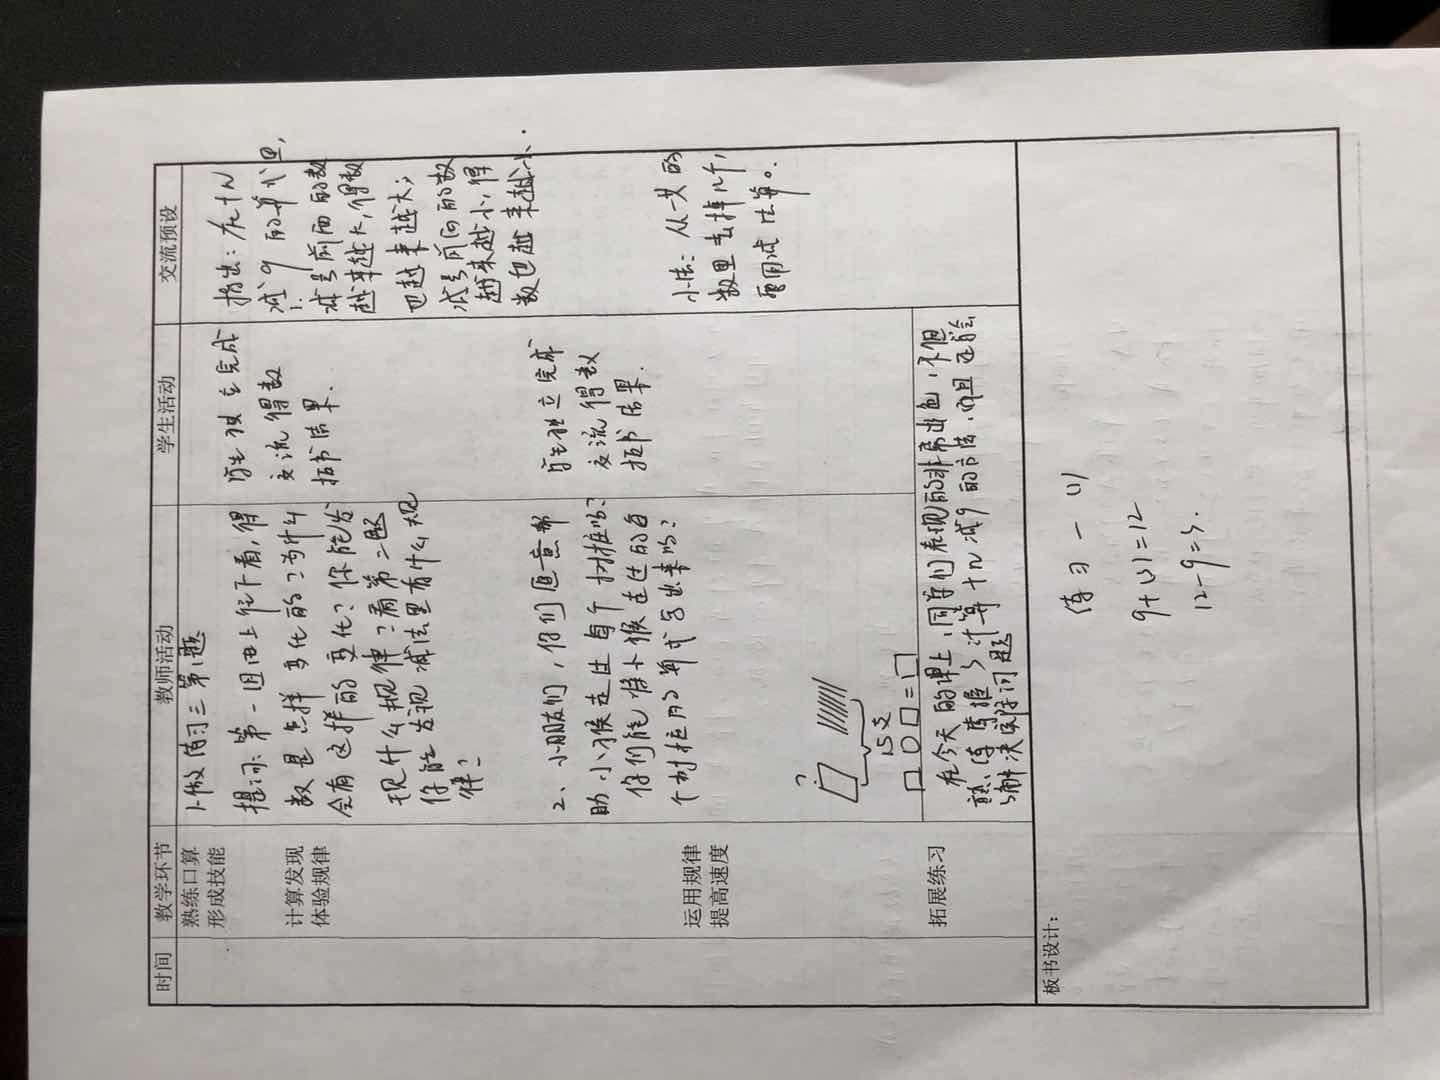 时间 教学环节 教师活动 学生活动 交流预设
熟练口算
形成技能
计算发现
体验规律
运用规律
提高速度
拓展练习
1、做练习三第1题
提问：第一组由上往下看，得
数是怎样变化的？为什么
会有这样的变化？你能发
现什么规律？看第二题
你能发现减法里有什么规
律？
2、小朋友们，你们愿意帮
助小猴走过每个树桩吗？
你们能将小猴走过的每
个树桩的算式写出来吗？
?
15支
□○□=□
在今天的课上，同学们表现的非常出色，不但
熟练掌握了计算十几减9的方法，而且还学会
了解决实际问题
学生独立完成
交流得数
指书结果.
学生独立完成
交流得数
指书结果.
指出：在十几
减9的算式里，
减号前面的数
越来越大，得数
也越来越大；
减号前面的数
越来越小，得
数也越来越小.
小结：从一共的
数里去掉几个，
要用减法算。
板书设计：
练习一 (1)
9+(3)=12
12-9=3.